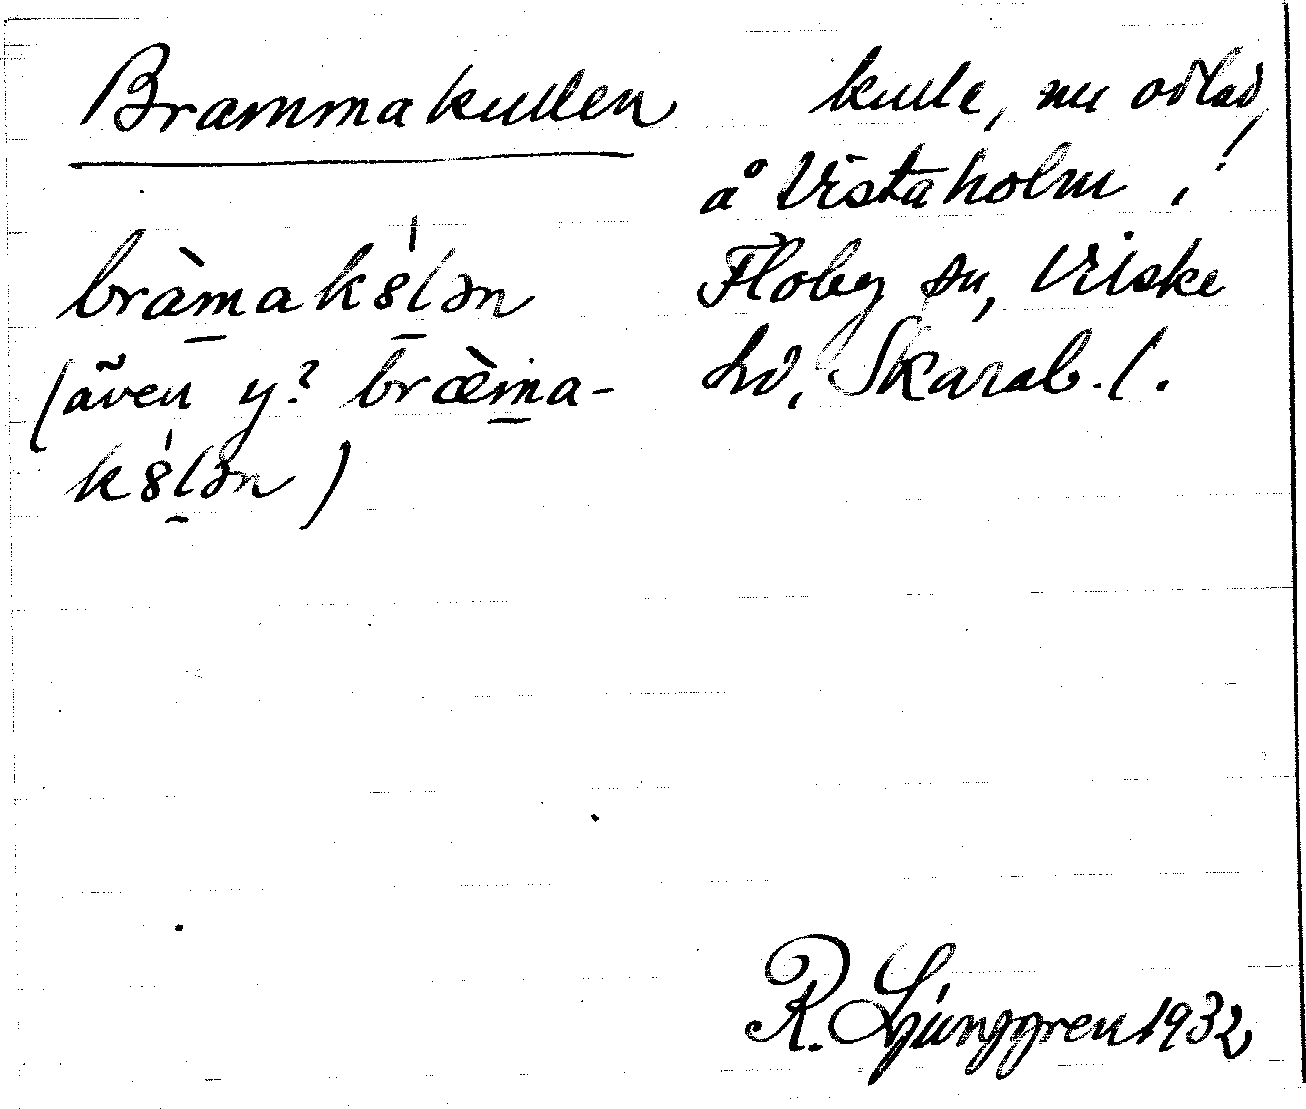 Brammakullen
bràmak8́lən
(även y? bræ̀ma-
k8́lən)
kulle, nu odlad,
å Vistaholm i
Floby sn, Vilske
hd, Skarab. l.
R. Ljunggren 1932